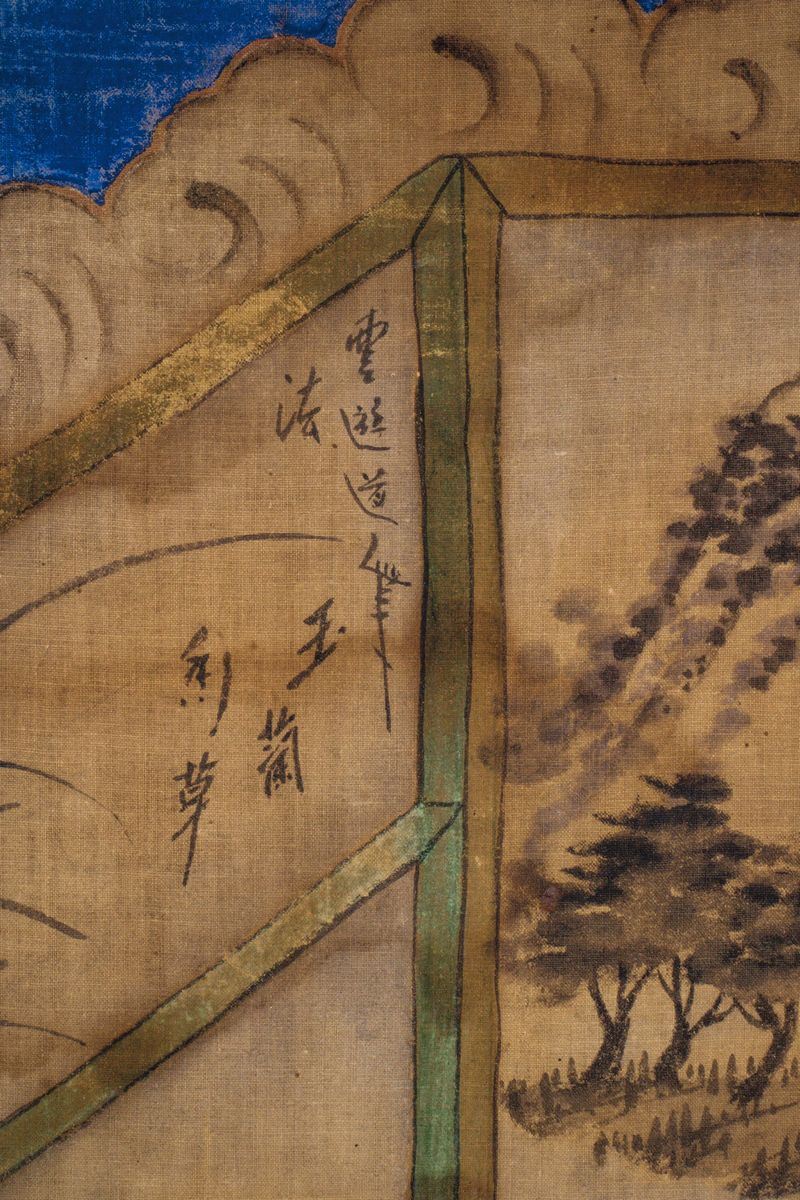 雲遊道人筆
法
玉蘭
草